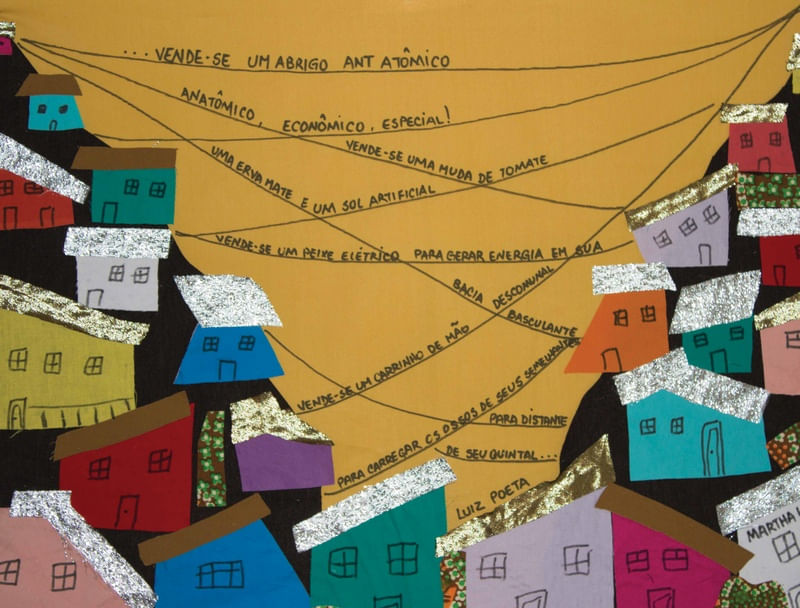 ...VENDE-SE UM ABRIGO ANT ATÔMICO
ANATÔMICO, ECONÔMICO, ESPECIAL!
VENDE-SE UMA MUDA DE TOMATE
UMA ERVA MATE E UM SOL ARTIFICIAL
VENDE-SE UM PEIXE ELÉTRICO PARA GERAR ENERGIA EM SUA
BACIA DESCOMUNAL
BASCULANTE
VENDE-SE UM CARRINHO DE MÃO
PARA CARREGAR OS OSSOS DE SEUS SEMELHANTES
PARA DISTANTE
DE SEU QUINTAL...
LUIZ POETA
MARTHA